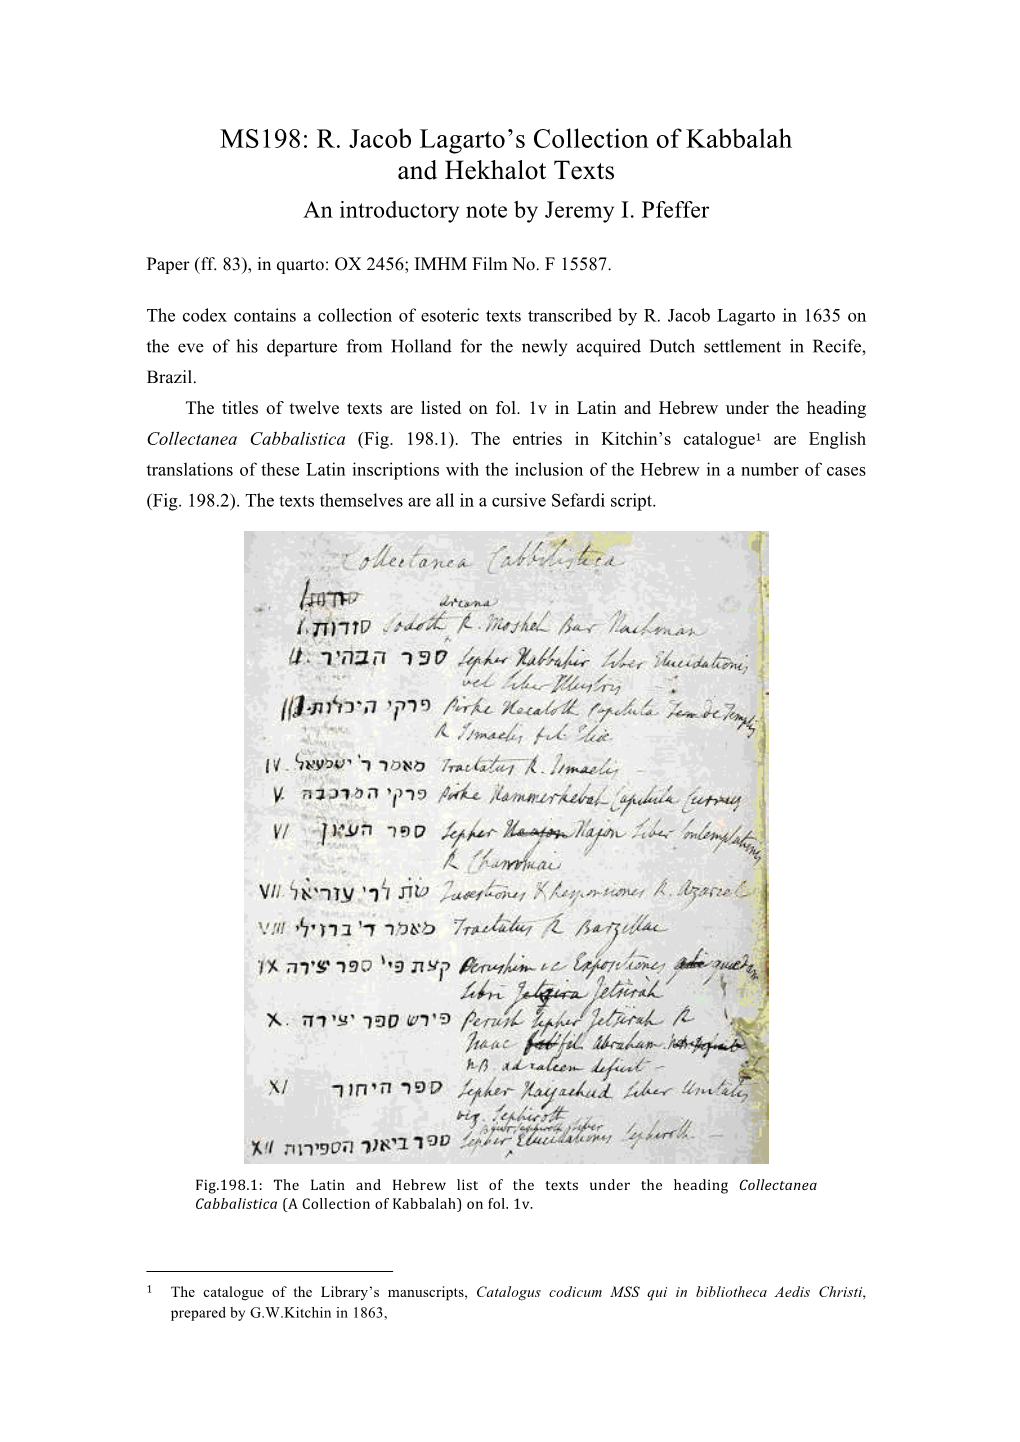 MS198: R. Jacob Lagarto’s Collection of Kabbalah
and Hekhalot Texts
An introductory note by Jeremy I. Pfeffer
Paper (ff. 83), in quarto: OX 2456; IMHM Film No. F 15587.
The codex contains a collection of esoteric texts transcribed by R. Jacob Lagarto in 1635 on
the eve of his departure from Holland for the newly acquired Dutch settlement in Recife,
Brazil.
The titles of twelve texts are listed on fol. 1v in Latin and Hebrew under the heading
Collectanea Cabbalistica (Fig. 198.1). The entries in Kitchin’s catalogue1 are English
translations of these Latin inscriptions with the inclusion of the Hebrew in a number of cases
(Fig. 198.2). The texts themselves are all in a cursive Sefardi script.
Collectanea Cabbilistica
arcana
I. סודות Sodoth R. Mosheh Bar Nachman
II. ספר הבהיר Sepher Habbahir Liber Elucidationis
vel Liber Illustris
III. פרקי היכלות Pirke Hecaloth Capitula de Templis
R Ismaelis fil. Eliae
IV. מאמר ר' ישמעאל Tractatus R. Ismaelis
V. פרקי המרכבה Pirke Hammerkebah Capitula Currus
VI ספר העיון Sepher Hajon Liber Contemplationis
R Chammai
VII שת לר' עזריאל Quaestiones & Responsiones R. Azariel
VIII מאמר ר' ברזילי Tractatus R Barzillae
IX קצת פי' ספר יצירה Perushim Expositiones quaedam
Libri Jetsirah
X. פירש ספר יצירה Perush Sepher Jetsirah R
Isaac fil. Abraham
NB. ad calcem defecit
XI ספר היחוד Sepher Hayachud Liber Unitatis
viz. Sephiroth
XII ספר ביאור הספירות Sepher Elucidationis Sephiroth
Fig.198.1: The Latin and Hebrew list of the texts under the heading Collectanea
Cabbalistica (A Collection of Kabbalah) on fol. 1v.
1 The catalogue of the Library’s manuscripts, Catalogus codicum MSS qui in bibliotheca Aedis Christi,
prepared by G.W.Kitchin in 1863,